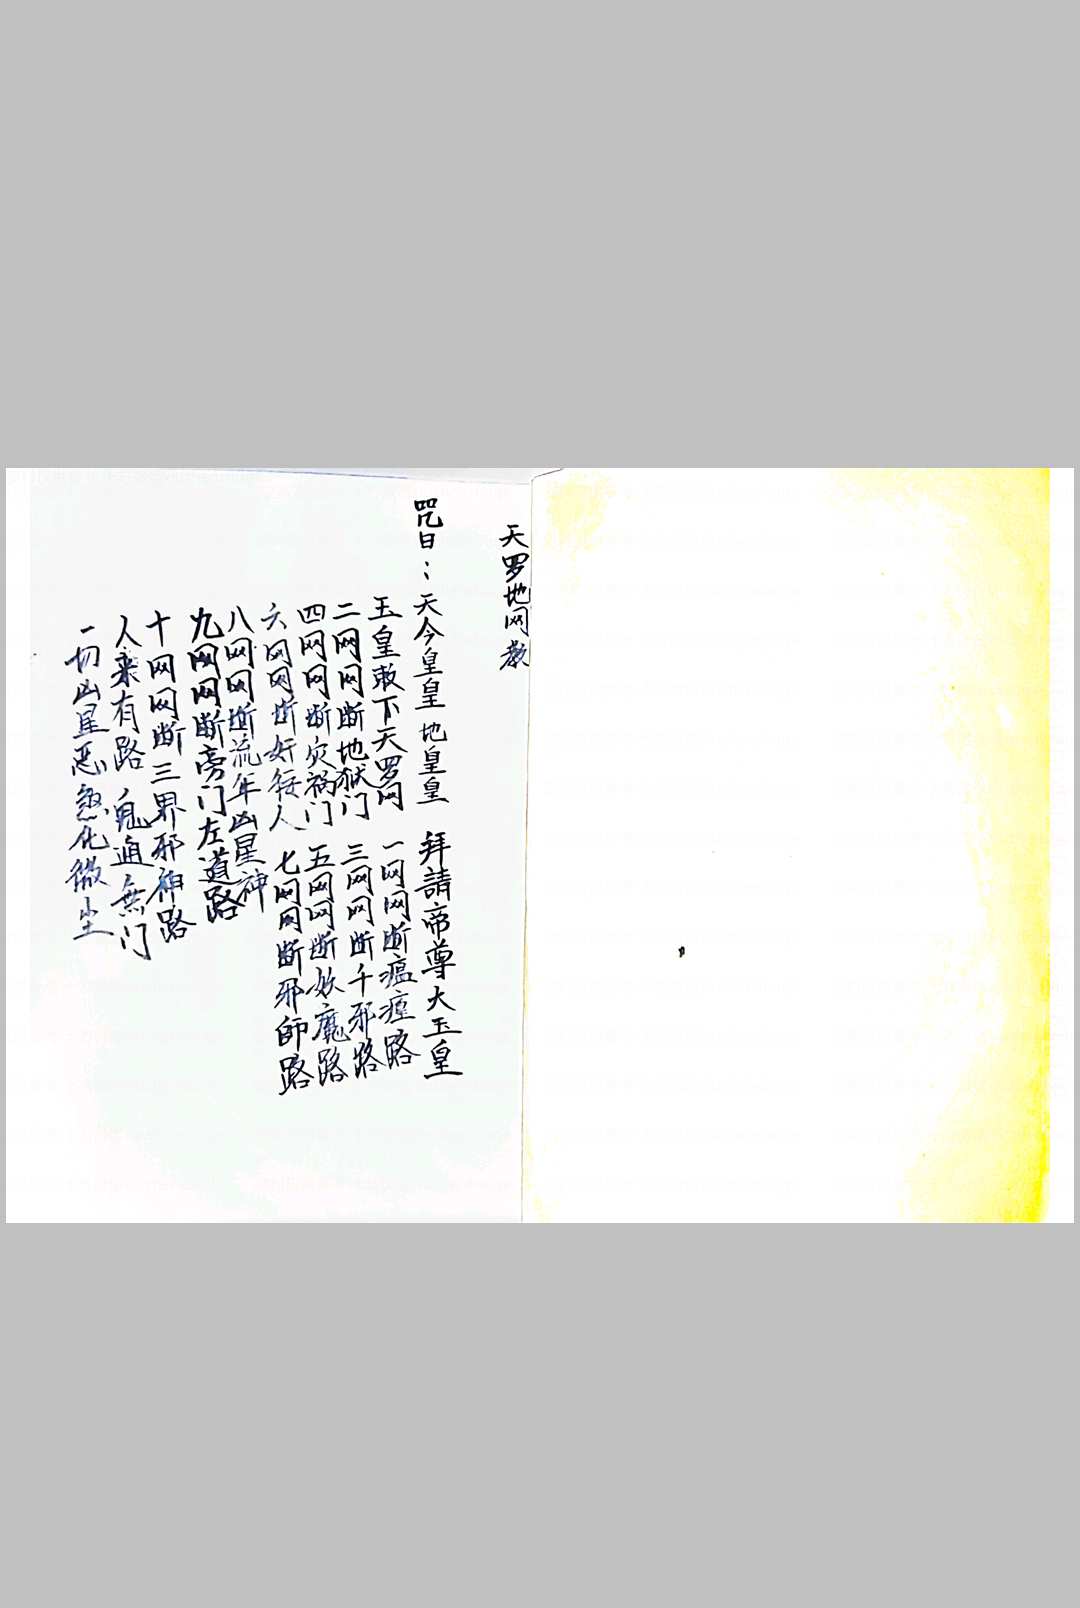 天罗地网教
咒曰：天今皇皇 地皇皇 拜請帝尊大玉皇
玉皇敕下天罗网 一网网断瘟㾮路
二网网断地狱门 三网网断千邪路
四网网断灾祸门 五网网断妖魔路
六网网断奸佞人 七网网断邪師路
八网网断流年凶星神
九网网断旁门左道路
十网网断三界邪神路
人来有路 鬼通無门
一切凶星恶煞化微尘